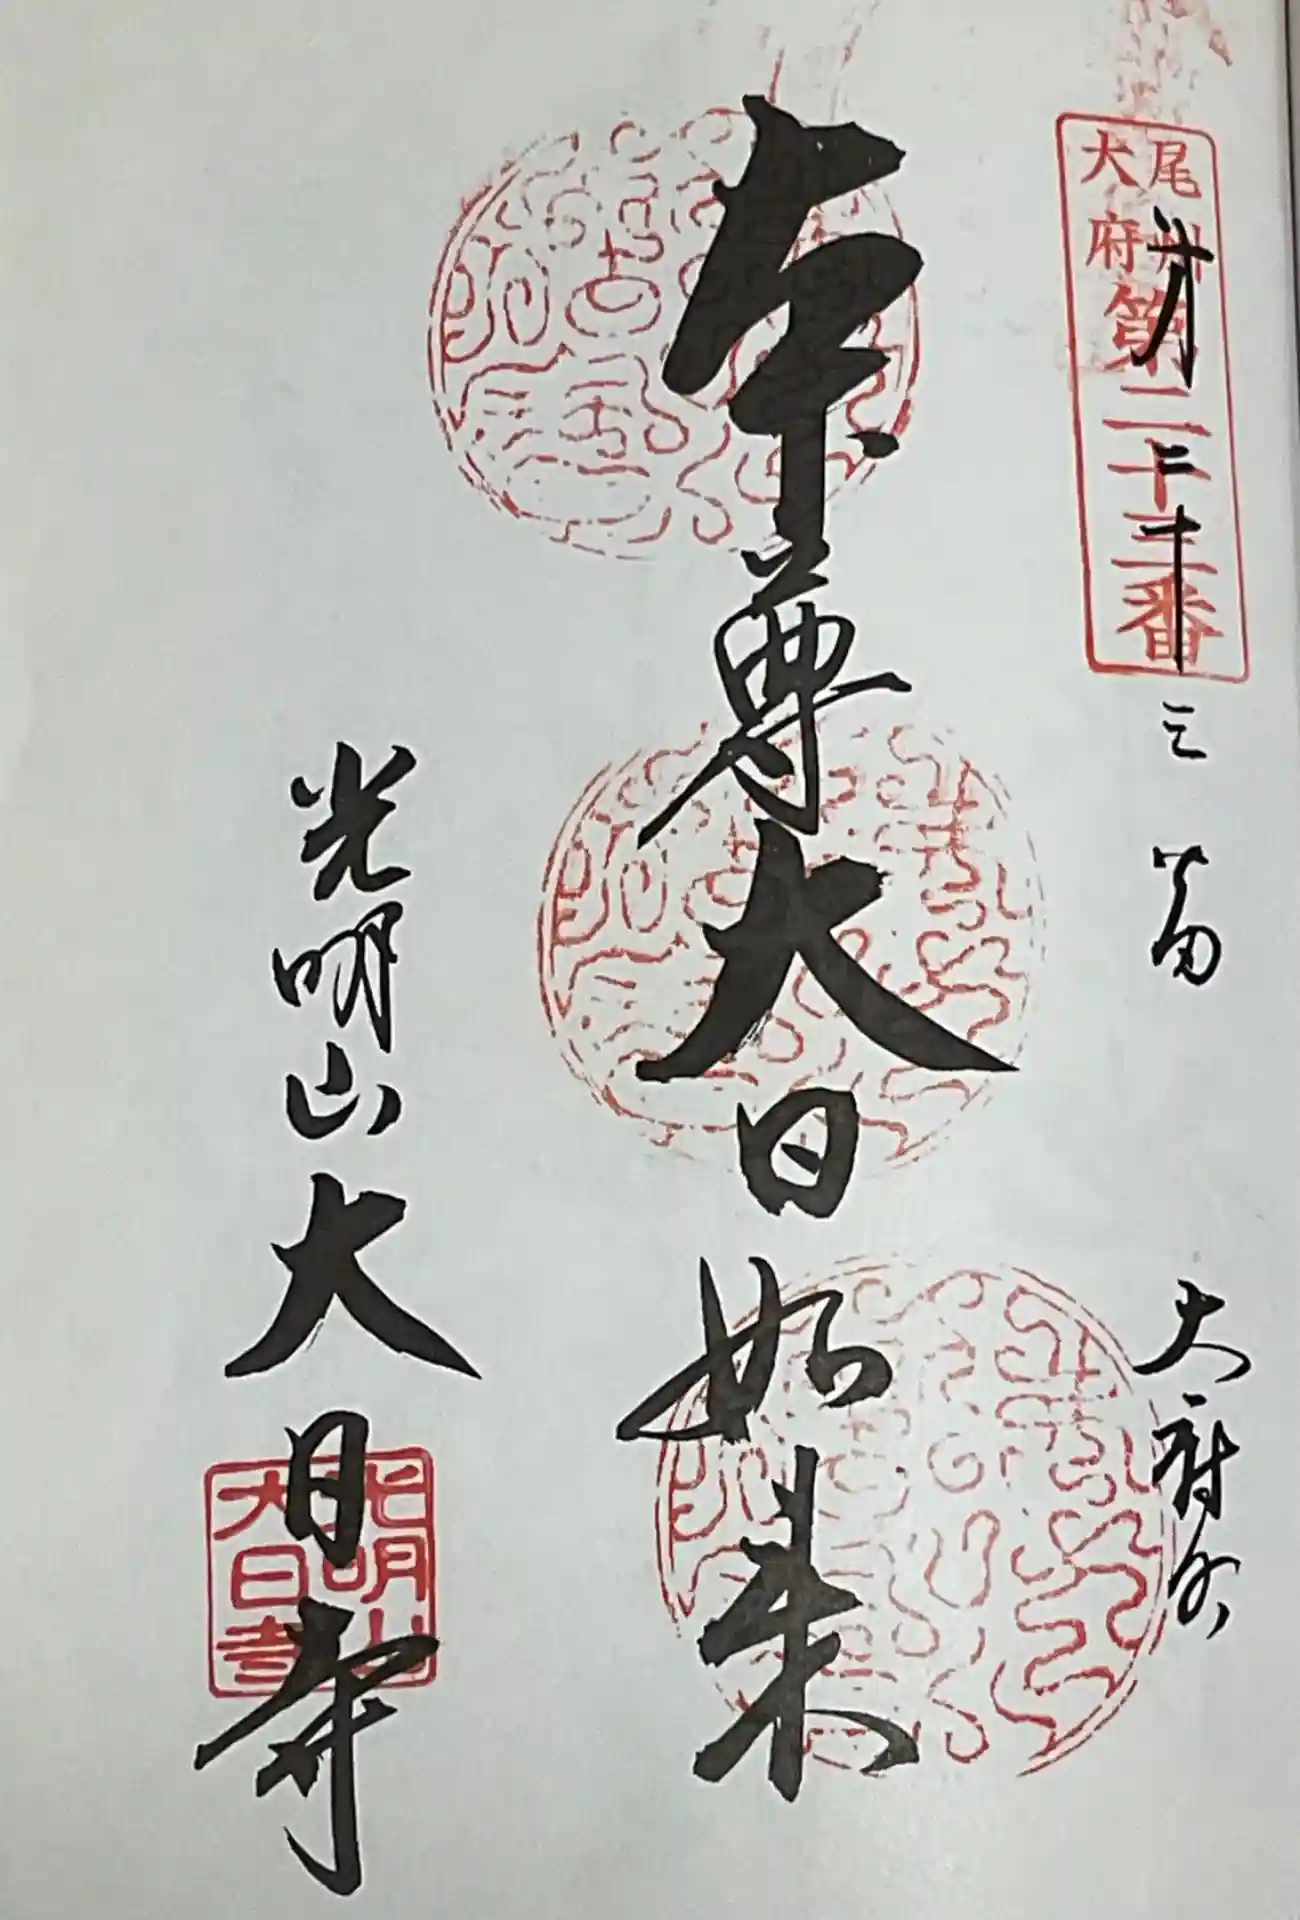 尾州
大府
第二十三番
第二十三番 大府
本尊大日如来
光明山大日寺
光明山
大日寺